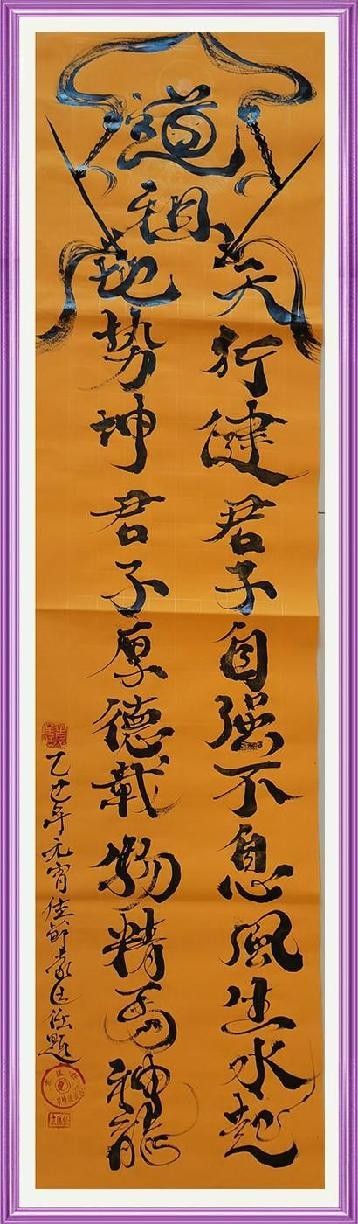 道祖
天行健君子自强不息風生水起
地势坤君子厚德載物精马神龍
乙巳年元宵佳節